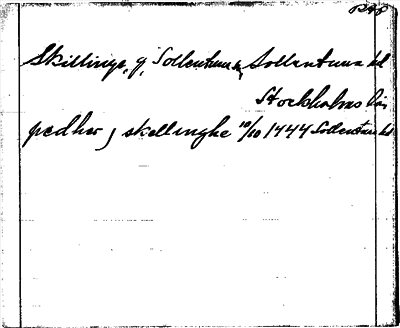 Skillinge, g, Sollentuna sn, Sollentuna hd
Stockholms län
pedher j skellinghe 10/10 1444 Sollentuna hd